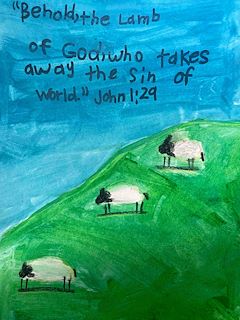 "Behold, the Lamb
of God, who takes
away the sin of
world." John 1:29